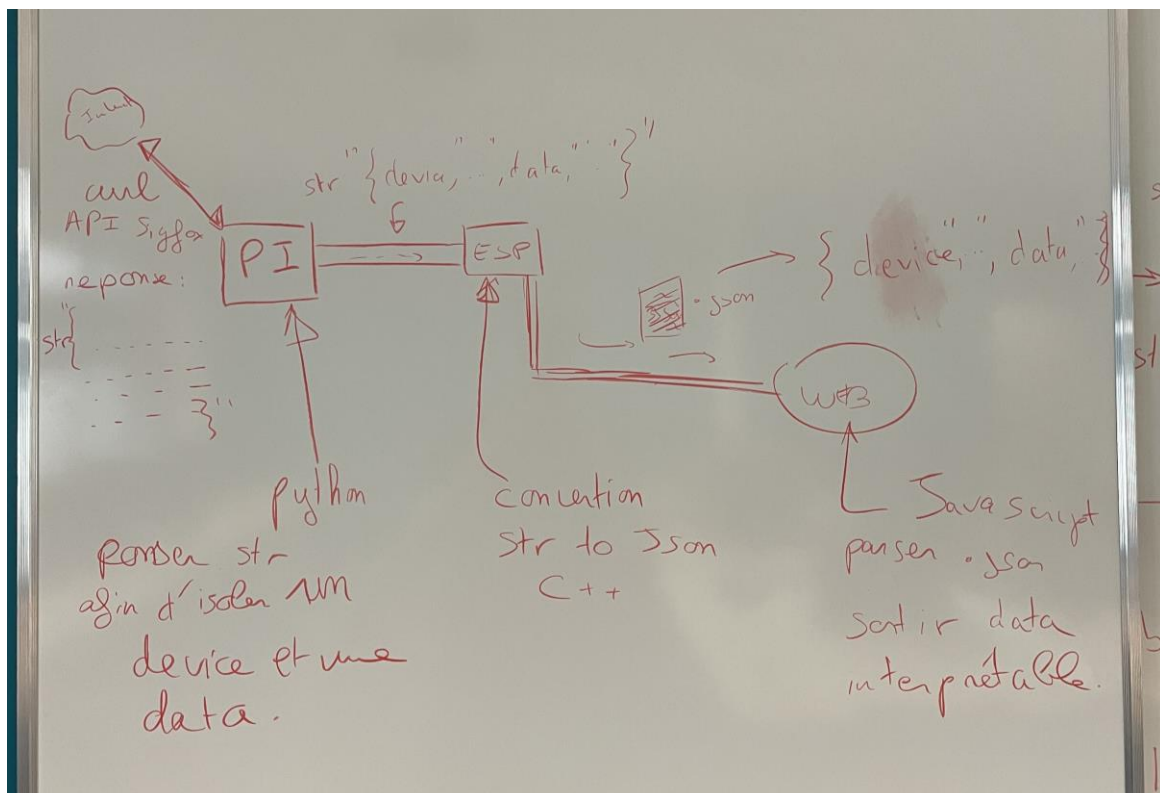 curl
API Sigfox
reponse:
str"{
}"
str "{device,"..",data,".."}"
PI
ESP
.json
{ device,"..", data,
WEB
python
Parser str
afin d'isoler UN
device et une
data.
Convertion
str to Json
C++
Javascript
parser .json
sortir data
interprétable.